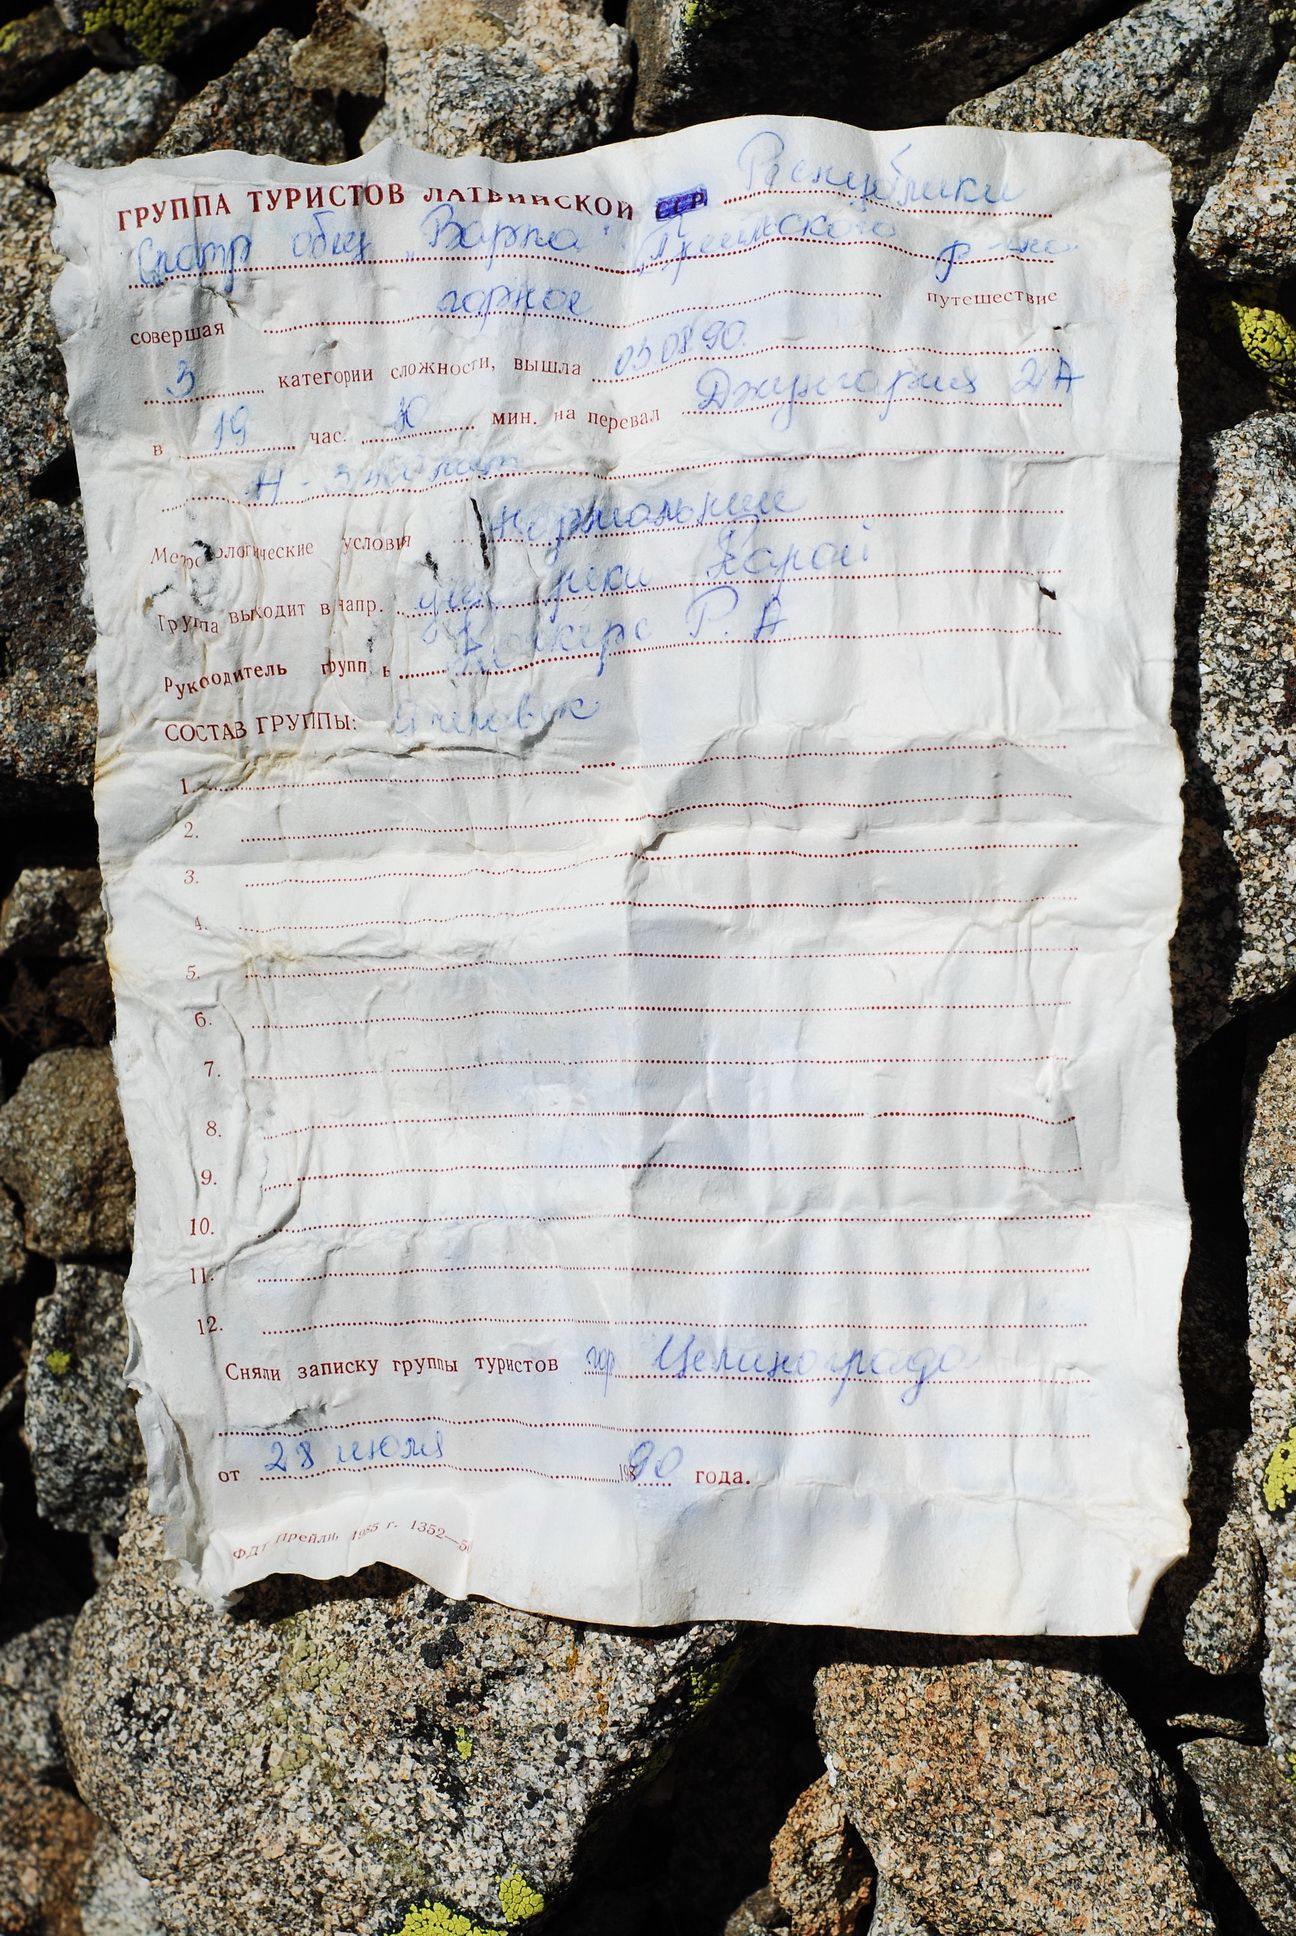 ГРУППА ТУРИСТОВ ЛАТВИЙСКОЙ ССР Республики
общ „Варпа" р-на
совершая горное путешествие
3 категории сложности, вышла 03.08.90.
в 19 час. 10 мин. на перевал Джунгария 2А
Метеорологические условия нормальные
Группа выходит в напр. реки Карой
Руководитель группы Р. А
СОСТАВ ГРУППЫ: человек
1.
2.
3.
4.
5.
6.
7.
8.
9.
10.
11.
12.
Сняли записку группы туристов гор Целинограда
от 28 июля 1990 года.
ФДТ Прейли, 1985 г. 1352—5